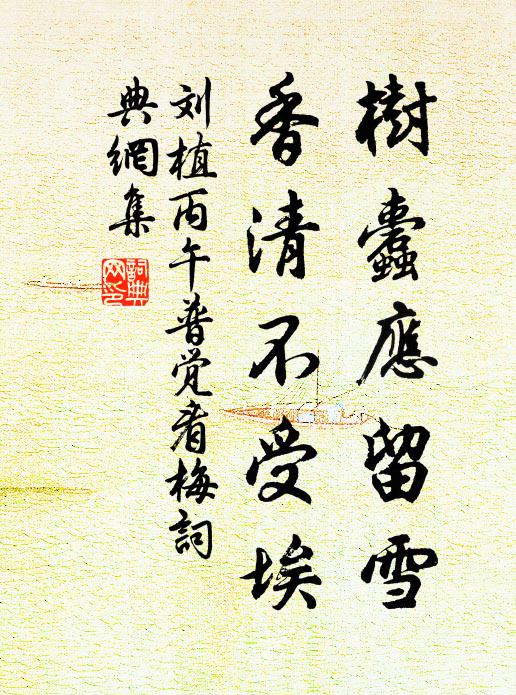 樹蠹應留雪
香清不受埃
刘植丙午普觉看梅詞
典網集
詞典網印